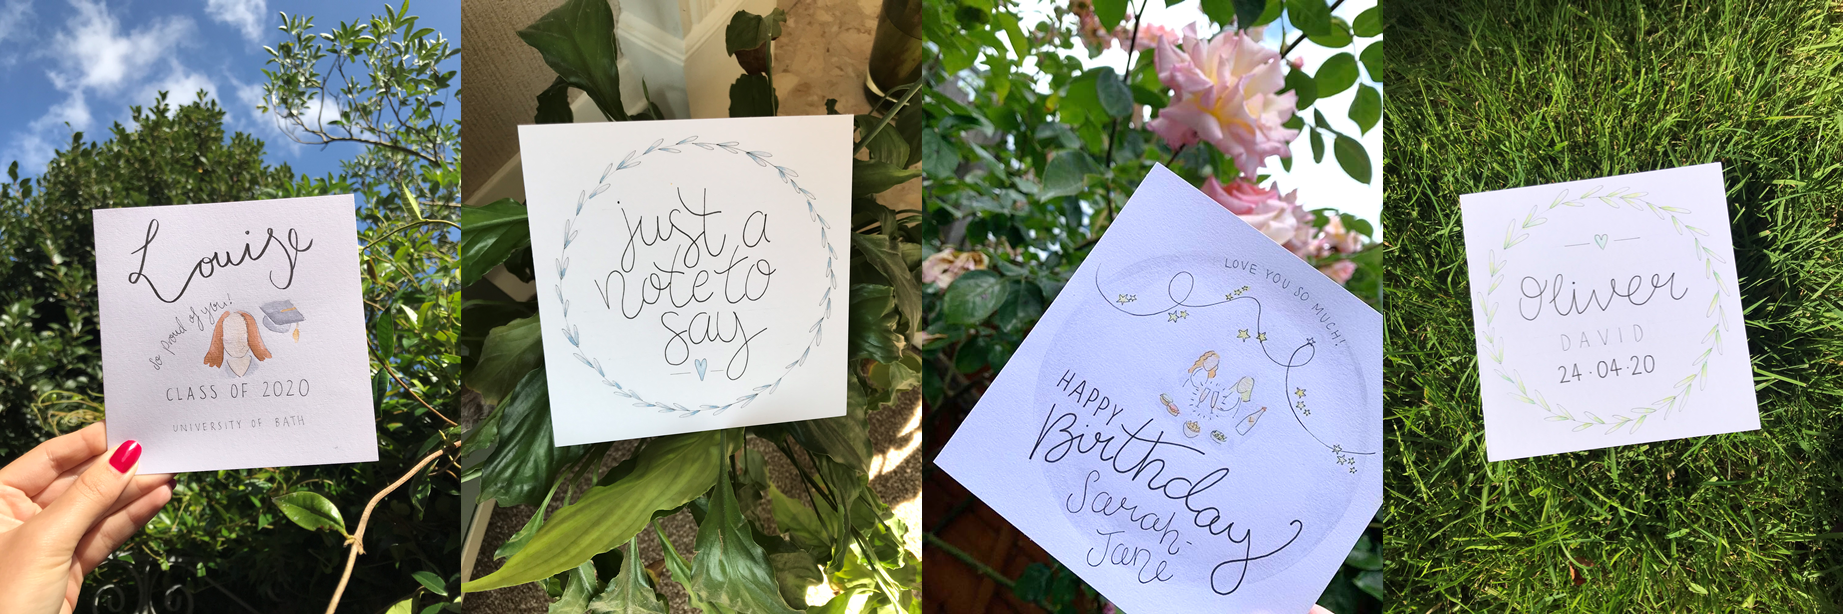 Louise
So proud of you!
CLASS OF 2020
UNIVERSITY OF BATH
just a
note to
say
LOVE YOU SO MUCH!
HAPPY
Birthday
Sarah-
Jane
Oliver
DAVID
24·04·20